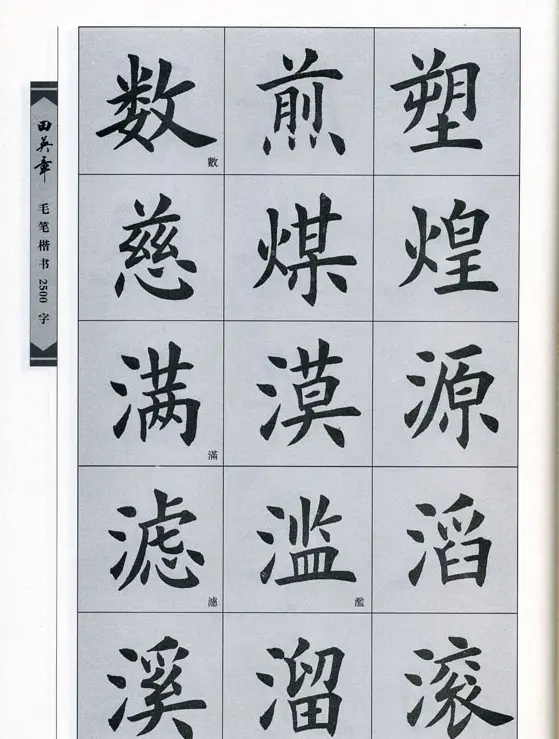 田英章 毛笔楷书2500字
数 煎 塑
數
慈 煤 煌
满 漠 源
滿
滤 滥 滔
濾 濫
溪 溜 滚